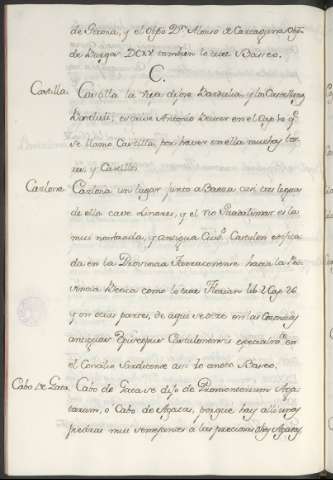 de Girona, y el Obpo Dn. Alonso de Cartagena Obpo
de Burgos DCXV tambien lo trae Baseo.
C.
Castilla Castilla la vieja dijose Bardulia y los Castellanos
Barduli; escrive Antonio Beuter en el Cap. 10 q.
se llamo Castilla, por haver en ella muchas tor-
res, y Castillos
Cazlona Cazlona un lugar junto a Baeza casi tres leguas
de ella cave Linares, y el rio Guadalimar es la
mui nombrada, y antigua Ciud. Castulon edifica-
da en la Provincia Tarraconense hacia la Pro-
vincia Betica como lo trae Florian lib. 2 Cap. 26
y en otras partes, de aqui se dice en las
antiguas Episcopus Castulonensis especialmte. en
el Concilio Sardicense asi lo anota Baseo.
Cabo de Gata Cabo de Gata se dijo de Promontorium Aga-
tarum, o Cabo de Agatas, porque hay alli unas
piedras mui semejantes a las preciosas dhas Agatas